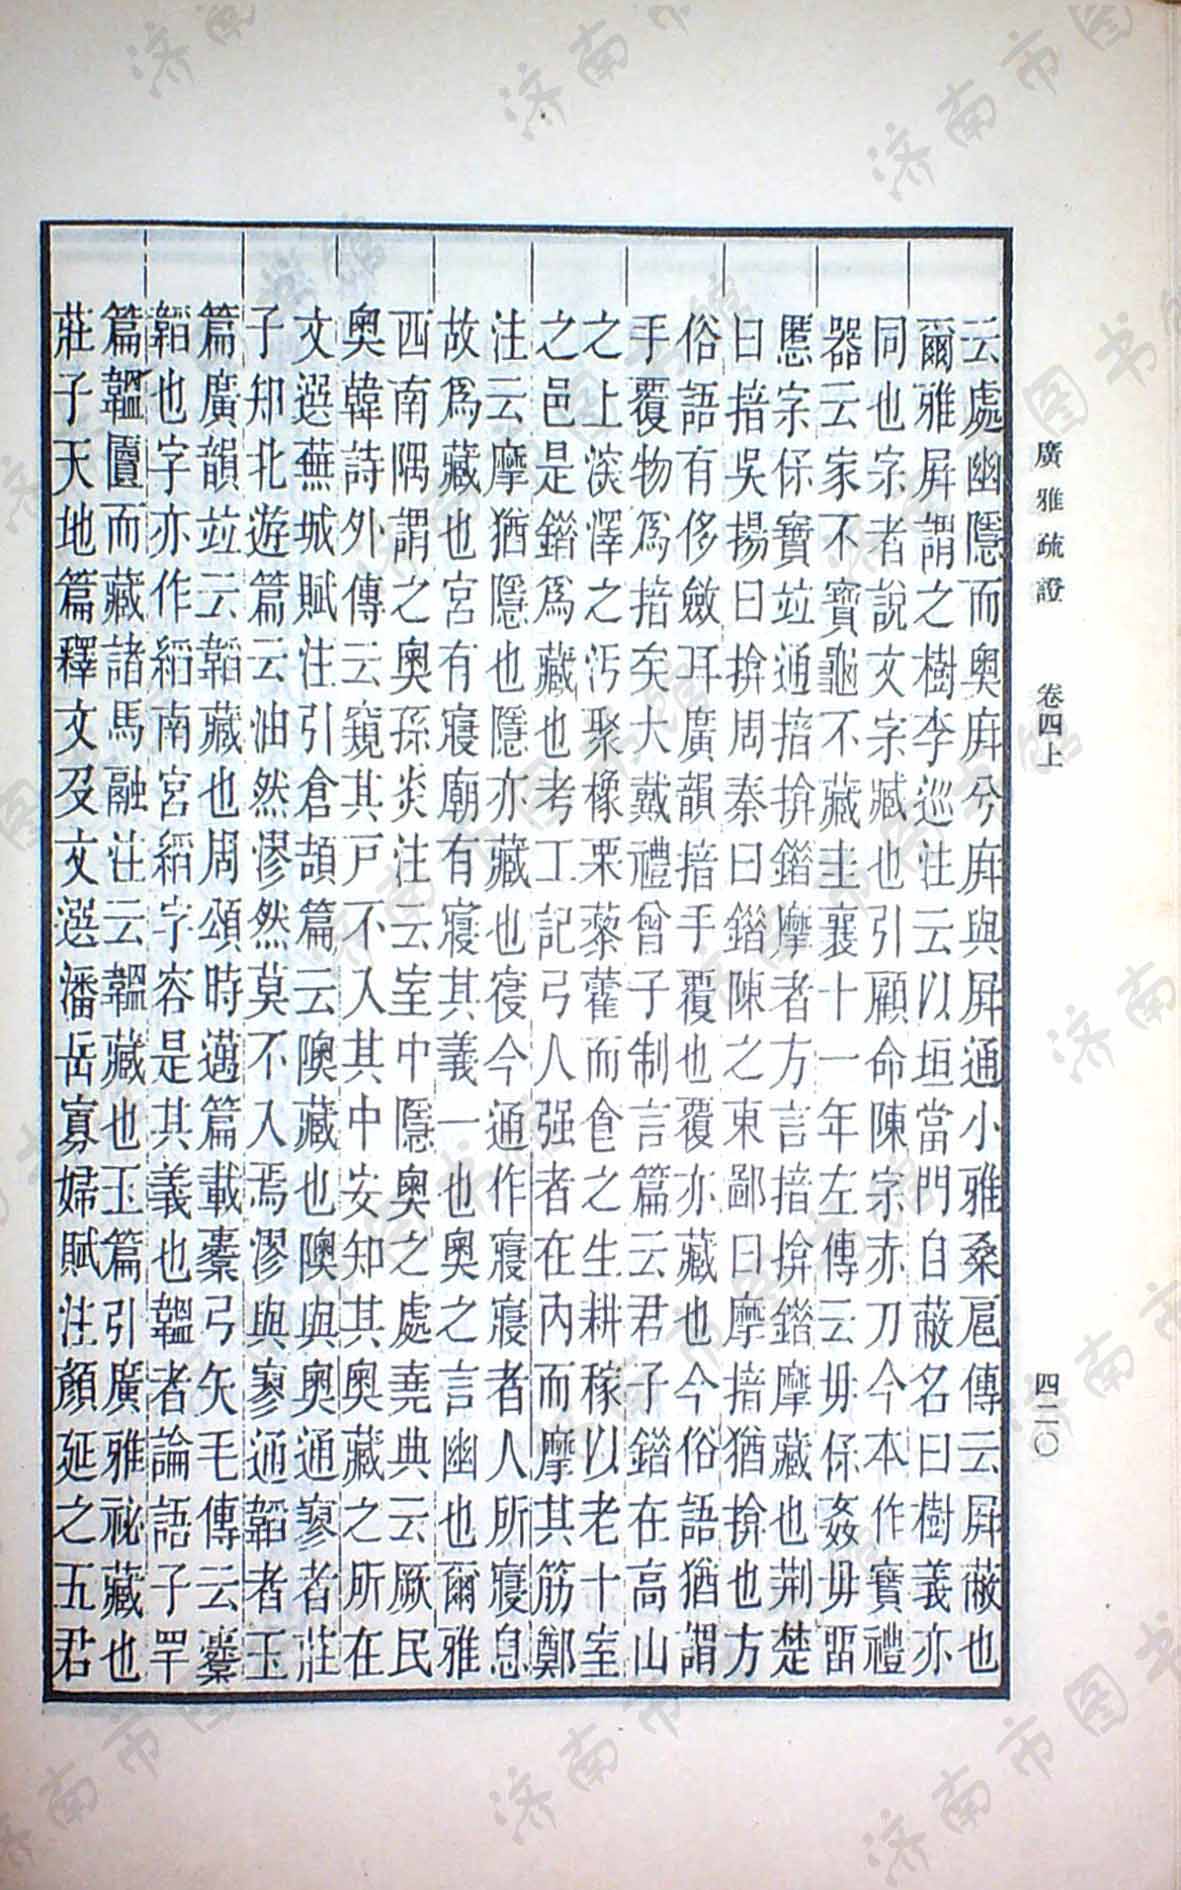 廣雅疏證　卷四上　四二〇
云處幽隱而奧庰兮庰與屏通小雅桑扈傳云屏蔽也
爾雅屏謂之樹李巡注云以垣當門自蔽名曰樹義亦
同也宗者說文宗臧也引顧命陳宗赤刀今本作寶禮
器云家不寶龜不藏圭襄十一年左傳云毋保姦毋畱
慝宗保寶竝通揞揜錔摩者方言揞揜錔摩藏也荆楚
曰揞吳揚曰揜周秦曰錔陳之東鄙曰摩揞猶揜也方
俗語有侈斂耳廣韻揞手覆也覆亦藏也今俗語猶謂
手覆物爲揞矣大戴禮曾子制言篇云君子錔在高山
之上深澤之汚聚橡栗藜藿而食之生耕稼以老十室
之邑是錔爲藏也考工記弓人强者在內而摩其筋鄭
注云摩猶隱也隱亦藏也寑今通作寢寢者人所寢息
故爲藏也宮有寢廟有寢其義一也奧之言幽也爾雅
西南隅謂之奧孫炎注云室中隱奧之處堯典云厥民
奧韓詩外傳云窺其戸不入其中安知其奧藏之所在
文選蕪城賦注引倉頡篇云隩藏也隩與奧通寥者莊
子知北遊篇云油然漻然莫不入焉漻與寥通韜者玉
篇廣韻竝云韜藏也周頌時邁篇載櫜弓矢毛傳云櫜
韜也字亦作縚南宮縚字容是其義也韞者論語子罕
篇韞匵而藏諸馬融注云韞藏也玉篇引廣雅祕藏也
莊子天地篇釋文及文選潘岳寡婦賦注顏延之五君